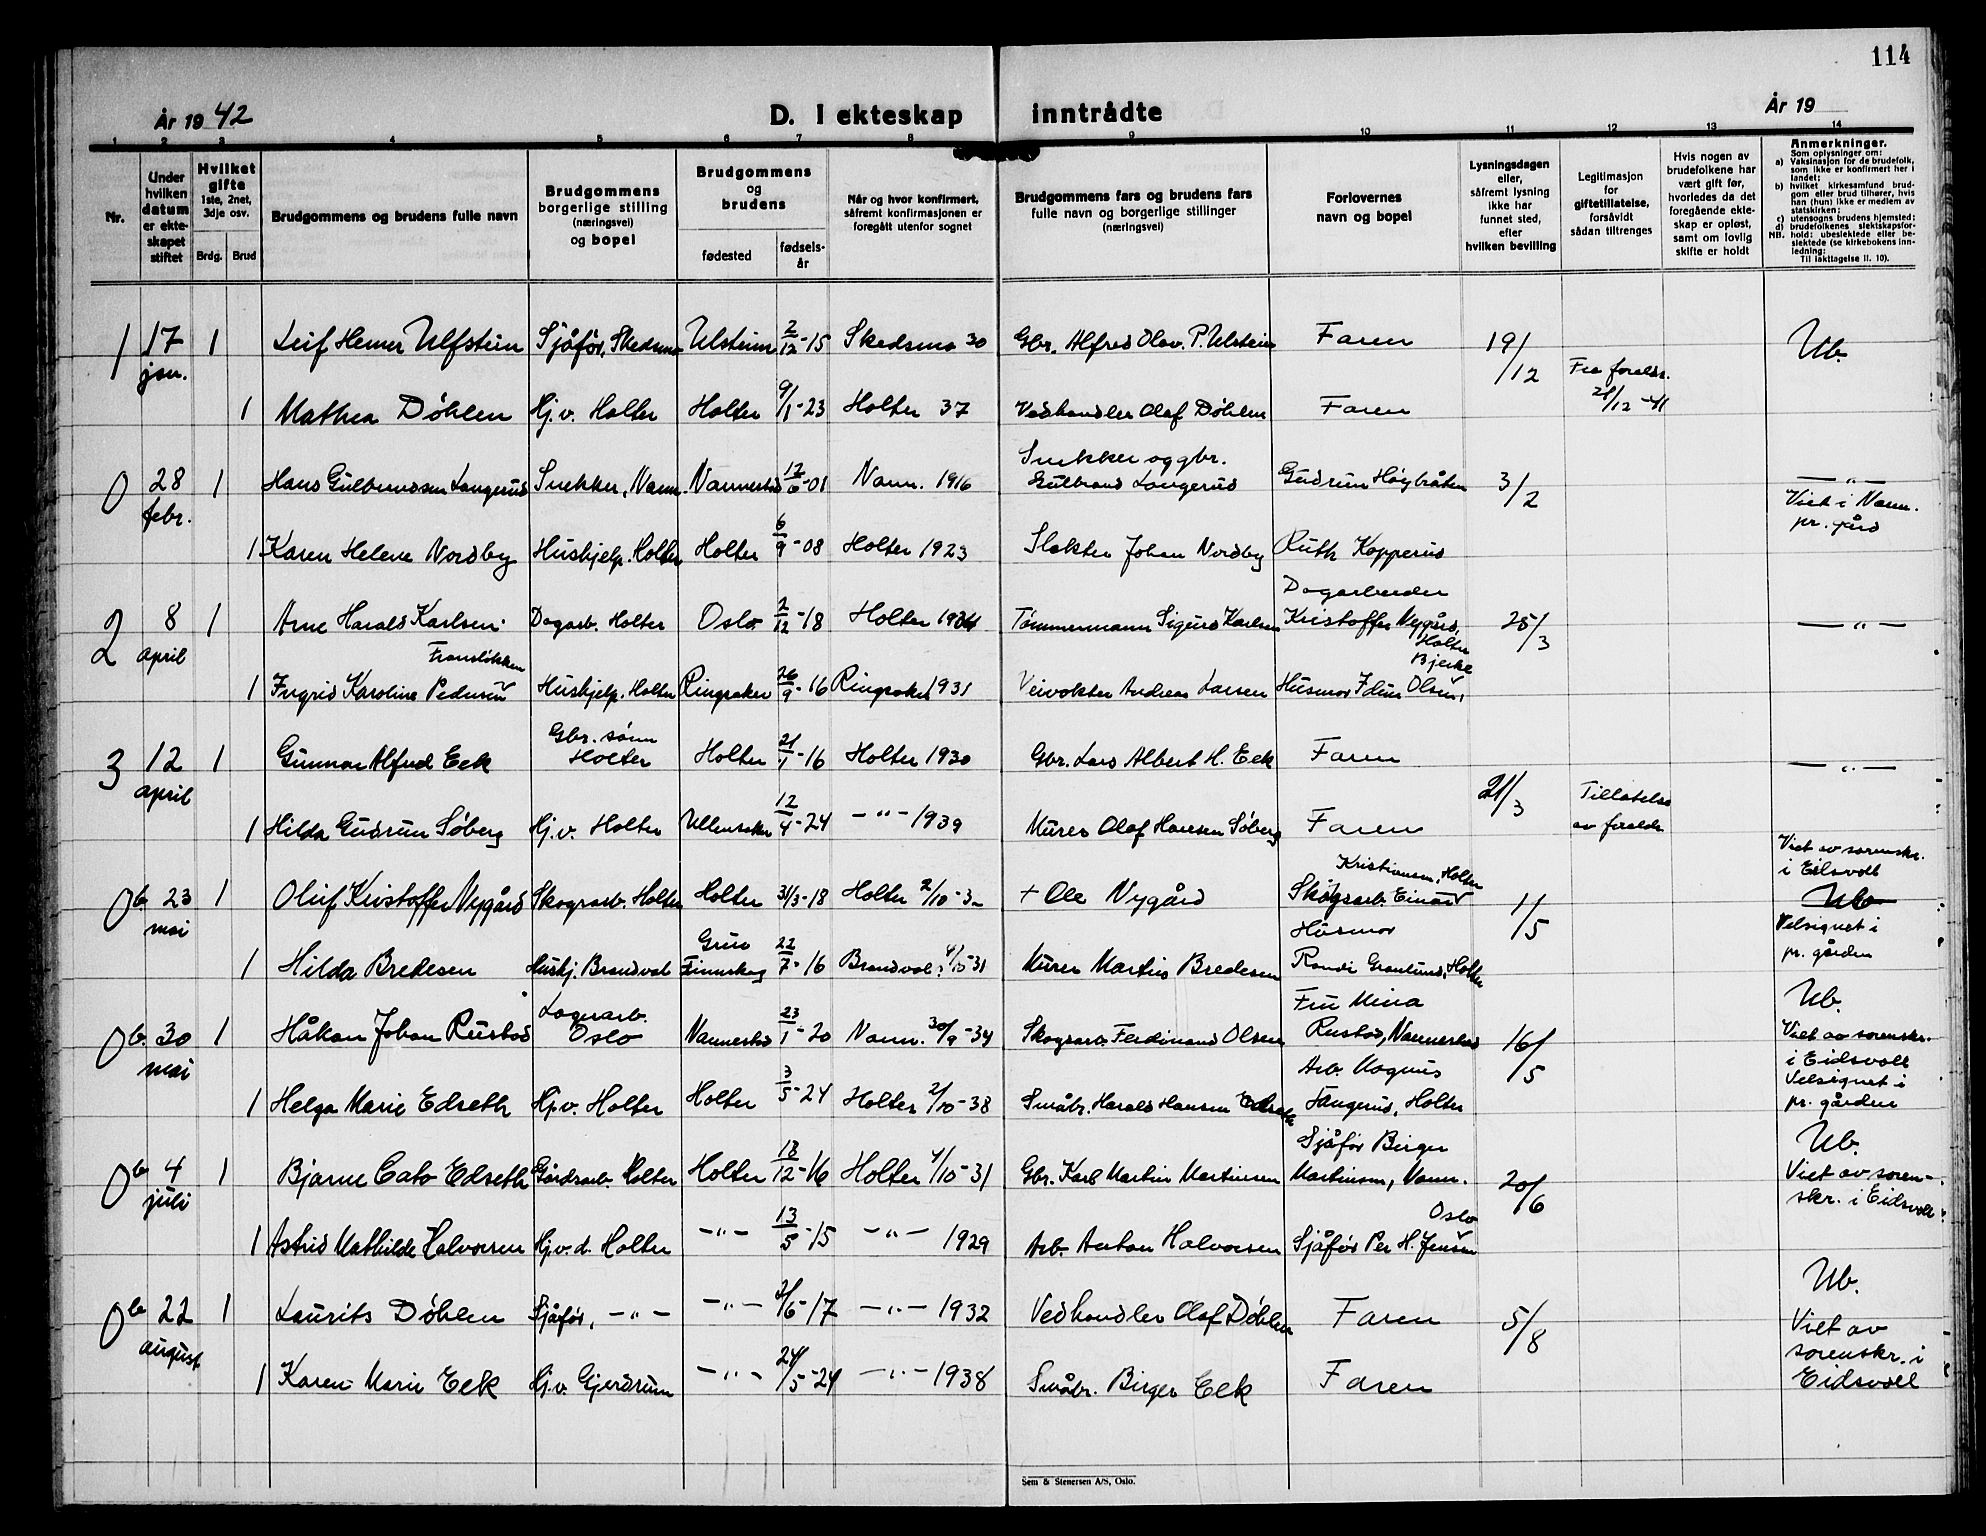 114
År 1942
D. I ekteskap inntrådte
År 19
1 2 3 4 5 6 7 8 9 10 11 12 13 14
Nr.
Under hvilken datum er ekteskapet stiftet
Hvilket gifte 1ste, 2net, 3dje osv.
Brdg. Brud
Brudgommens og brudens fulle navn
Brudgommens borgerlige stilling (næringsvei) og bopel
Brudgommens og brudens
fødested
fødselsår
Når og hvor konfirmert, såfremt konfirmasjonen er foregått utenfor sognet
Brudgommens fars og brudens fars fulle navn og borgerlige stillinger (næringsvei)
Forlovernes navn og bopel
Lysningsdagen eller, såfremt lysning ikke har funnet sted, efter hvilken bevilling
Legitimasjon for giftetillatelse, forsåvidt sådan tiltrenges
Hvis nogen av brudefolkene har vært gift før, hvorledes da det foregående ekteskap er opløst, samt om lovlig skifte er holdt
Anmerkninger.
Som oplysninger om:
a) Vaksinasjon for de brudefolk, som ikke er konfirmert her i landet;
b) hvilket kirkesamfund brudgom eller brud tilhører, hvis han (hun) ikke er medlem av statskirken;
c) utensogns brudens hjemsted;
d) brudefolkenes slektskapsforhold: ubeslektede eller beslektede (se kirkebokens innledning;
NB.
Til iakttagelse II. 10).
1 17 jan. 1 Leif Hemer Ulfstein Sjåfør, Skedsmo Ulstein 2/12-15 Skedsmo 30 Gbr. Alfred Olav. P. Ulstein Faren 19/12 Ub.
1 Mathea Døhlen Hj.v. Holter Holter 9/1-23 Holter 37 Vedhandler Olaf Døhlen Faren Fra foreldr. 21/12-41
0 28 febr. 1 Hans Gulbrandsen Langerud Snekker, Nann. Nannestad 12/6-01 Nann. 1916 Snekker og gbr. Gulbrand Langerud Gudrun Høybråten 3/2 —"— Viet i Nann. pr. gård
1 Karen Helene Nordby Hushjelp. Holter Holter 6/9-08 Holter 1923 Slakter Johan Nordby Ruth Kopperud
2 8 april 1 Arne Harald Karlsen Dagarb. Holter Oslo 2/12-18 Holter 1934 Tømmermann Sigurd Karlsen Dagarbeider Kristoffer Nygård, Holter 25/3 —"—
1 Ingrid Karoline Pedersen Fransløkken Hushjelp. Holter Ringsaker 26/9-16 Ringsaker 1931 Veivokter Andreas Larsen Husmor Idun Olsen, Bjerke
3 12 april 1 Gunnar Alfred Eek Gbr. sønn Holter Holter 21/1-16 Holter 1930 Gbr. Lars Albert H. Eek Faren 21/3 —"—
1 Hilda Gudrun Søberg Hj.v. Holter Ullensaker 12/4-24 —"— 1939 Murer Olaf Hansen Søberg Faren Tillatelse av foreldr.
0b. 23 mai 1 Oluf Kristoffer Nygård Skogsarb. Holter Holter 31/3-18 Holter 2/10-3 + Ole Nygård Skogsarb. Einar Kristiansen, Holter 1/5 Viet av sorenskr. i Eidsvoll Ub Velsignet i pr. gården
1 Hilda Bredesen Hushj. Brandval Grue Finnskog 22/7-16 Brandval 4/10-31 Murer Martin Bredesen Husmor Randi Granlund, Holter
0b. 30 mai 1 Håkon Johan Rustad Lagerarb. Oslo Nannestad 23/1-20 Nann. 30/9-34 Skogsarb. Ferdinand Olsen Fru Mina Rustad, Nannestad 16/5 Ub. Viet av sorenskr. i Eidsvoll Velsignet i pr. gården
1 Helga Marie Edseth Hj.v. Holter Holter 3/5-24 Holter 2/10-38 Småbr. Harald Hansen Edseth Arb. Magnus Tangerud, Holter
0b. 4 juli 1 Bjarne Cato Edseth Gårdsarb. Holter Holter 18/12-16 Holter 4/10-31 Gbr. Karl Martin Martinsen Sjåfør Birger Martinsen, Nann. 20/6 Ub. Viet av sorenskr. i Eidsvoll
1 Astrid Mathilde Halvorsen Hj.v.d. Holter —"— 13/5-15 —"— 1929 Arb. Anton Halvorsen Sjåfør Per H. Jensen Oslo
0b. 22 august 1 Laurits Døhlen Sjåfør, —"— —"— 2/6-17 —"— 1932 Vedhandler Olaf Døhlen Faren 5/8 Ub. Viet av sorenskr. i Eidsvoll
1 Karen Marie Eek Hj.v. Gjerdrum —"— 24/5-24 —"— 1938 Småbr. Birger Eek Faren
Sem & Stenersen A/S, Oslo.